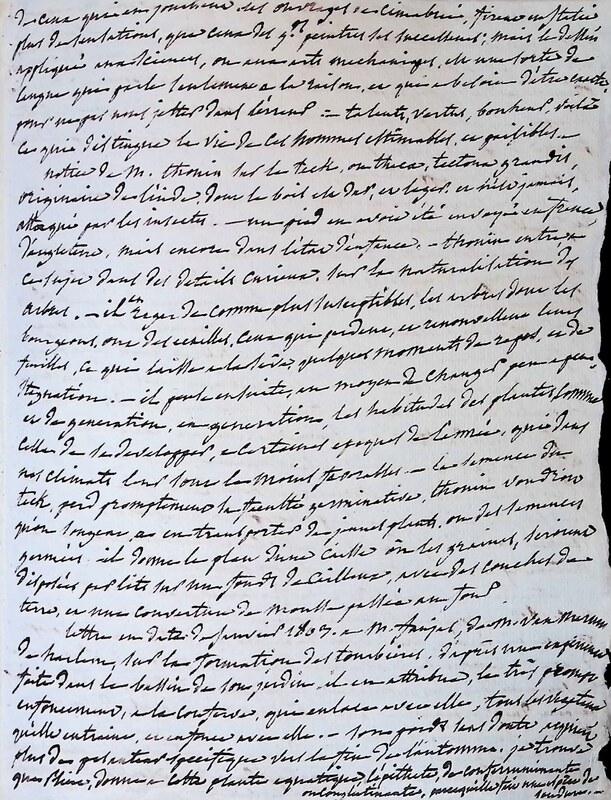 de ceux qui en jouchent les ouvrages de cimabué, firent en italie
plus de sensations, que ceux des g.ds peintres ses successeurs; mais le dessin
appliqué aux sciences, ou aux arts mechaniques, est une sorte de
langue qui parle seulement a la raison, et qui a besoin d'être exacte
pour ne pas nous jetter dans l'erreur = talents, vertus, bonheur voilà
ce qui distingue la vie de ces hommes estimables, et paisibles. -
notice de M. thouin sur le teck, ou theca, tectona grandis,
originaire de l'inde, dont le bois est dur, et léger, et n'est jamais,
attaqué par les insectes. - un pied en avoit été envoyé en france
d'angleterre, mais encore dans l'état d'enfance. - thouin entre a
ce sujet dans des details curieux, sur la naturalisation des
arbres. - il regarde comme plus susceptibles, les arbres dont les
bourgeons, ont des écailles, ceux qui perdent, et renouvellent leurs
feuilles, ce qui laisse a la sève, quelques moments de repos, et de
stagnation. - il parle ensuite, au moyen de changer peu a peu
et de generation, en generation, les habitudes des plantes, comme
celle de se developper, a certaines epoques de l'année, qui dans
nos climats leur sont les moins favorables. - la semence du
teck, perd promptement la faculté germinative, thouin voudroit
qu'on songeat a en transporter de jeunes plants, ou des semences
germées. il donne le plan d'une caisse où les graines, seroient
disposées par lits sur un fonds de cailloux, avec des couches de
terre, et une couverture de mousse
lettre en date de janvier 1807. a M. de M. Van Marum
de harlem, sur la formation des tourbières. d'après une expérience
faite dans le bassin de son jardin il en attribue, le très prompt
enfoncement, a la conferve, qui enlace avec elle, tous les
qu'elle entraine, et enfonce avec elle. - son poids sans doute
plus de pesanteur specifique vers la fin de l'automne. je trouve
que Pline, donne a cette plante aquatique, l'épithète, de
ou conglutinante, parcequ'elle une espèce de